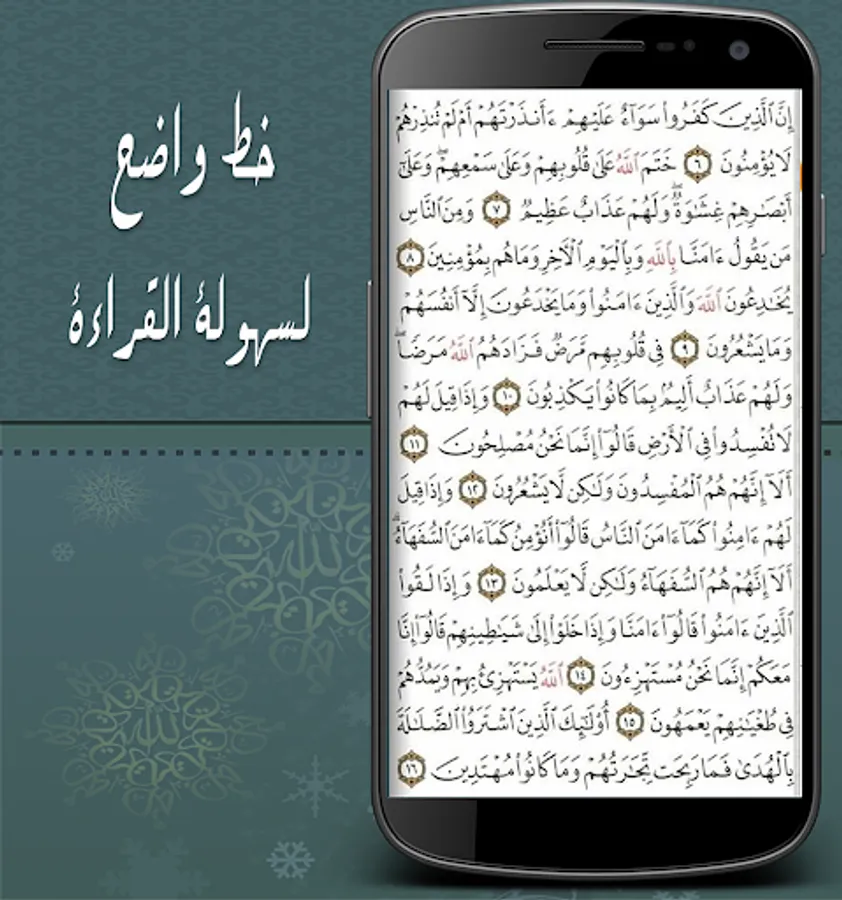 خط واضح
لسهولة القراءة
إِنَّ ٱلَّذِينَ كَفَرُوا۟ سَوَآءٌ عَلَيْهِمْ ءَأَنذَرْتَهُمْ أَمْ لَمْ تُنذِرْهُمْ
لَا يُؤْمِنُونَ ٦ خَتَمَ ٱللَّهُ عَلَىٰ قُلُوبِهِمْ وَعَلَىٰ سَمْعِهِمْ ۖ وَعَلَىٰٓ
أَبْصَٰرِهِمْ غِشَٰوَةٌ ۖ وَلَهُمْ عَذَابٌ عَظِيمٌ ٧ وَمِنَ ٱلنَّاسِ
مَن يَقُولُ ءَامَنَّا بِٱللَّهِ وَبِٱلْيَوْمِ ٱلْأَخِرِ وَمَا هُم بِمُؤْمِنِينَ ٨
يُخَٰدِعُونَ ٱللَّهَ وَٱلَّذِينَ ءَامَنُوا۟ وَمَا يَخْدَعُونَ إِلَّآ أَنفُسَهُمْ
وَمَا يَشْعُرُونَ ٩ فِى قُلُوبِهِم مَّرَضٌ فَزَادَهُمُ ٱللَّهُ مَرَضًا ۖ
وَلَهُمْ عَذَابٌ أَلِيمٌۢ بِمَا كَانُوا۟ يَكْذِبُونَ ١٠ وَإِذَا قِيلَ لَهُمْ
لَا تُفْسِدُوا۟ فِى ٱلْأَرْضِ قَالُوٓا۟ إِنَّمَا نَحْنُ مُصْلِحُونَ ١١
أَلَآ إِنَّهُمْ هُمُ ٱلْمُفْسِدُونَ وَلَٰكِن لَّا يَشْعُرُونَ ١٢ وَإِذَا قِيلَ
لَهُمْ ءَامِنُوا۟ كَمَآ ءَامَنَ ٱلنَّاسُ قَالُوٓا۟ أَنُؤْمِنُ كَمَآ ءَامَنَ ٱلسُّفَهَآءُ ۗ
أَلَآ إِنَّهُمْ هُمُ ٱلسُّفَهَآءُ وَلَٰكِن لَّا يَعْلَمُونَ ١٣ وَإِذَا لَقُوا۟
ٱلَّذِينَ ءَامَنُوا۟ قَالُوٓا۟ ءَامَنَّا وَإِذَا خَلَوْا۟ إِلَىٰ شَيَٰطِينِهِمْ قَالُوٓا۟ إِنَّا
مَعَكُمْ إِنَّمَا نَحْنُ مُسْتَهْزِءُونَ ١٤ ٱللَّهُ يَسْتَهْزِئُ بِهِمْ وَيَمُدُّهُمْ
فِى طُغْيَٰنِهِمْ يَعْمَهُونَ ١٥ أُو۟لَٰٓئِكَ ٱلَّذِينَ ٱشْتَرَوُا۟ ٱلضَّلَٰلَةَ
بِٱلْهُدَىٰ فَمَا رَبِحَت تِّجَٰرَتُهُمْ وَمَا كَانُوا۟ مُهْتَدِينَ ١٦